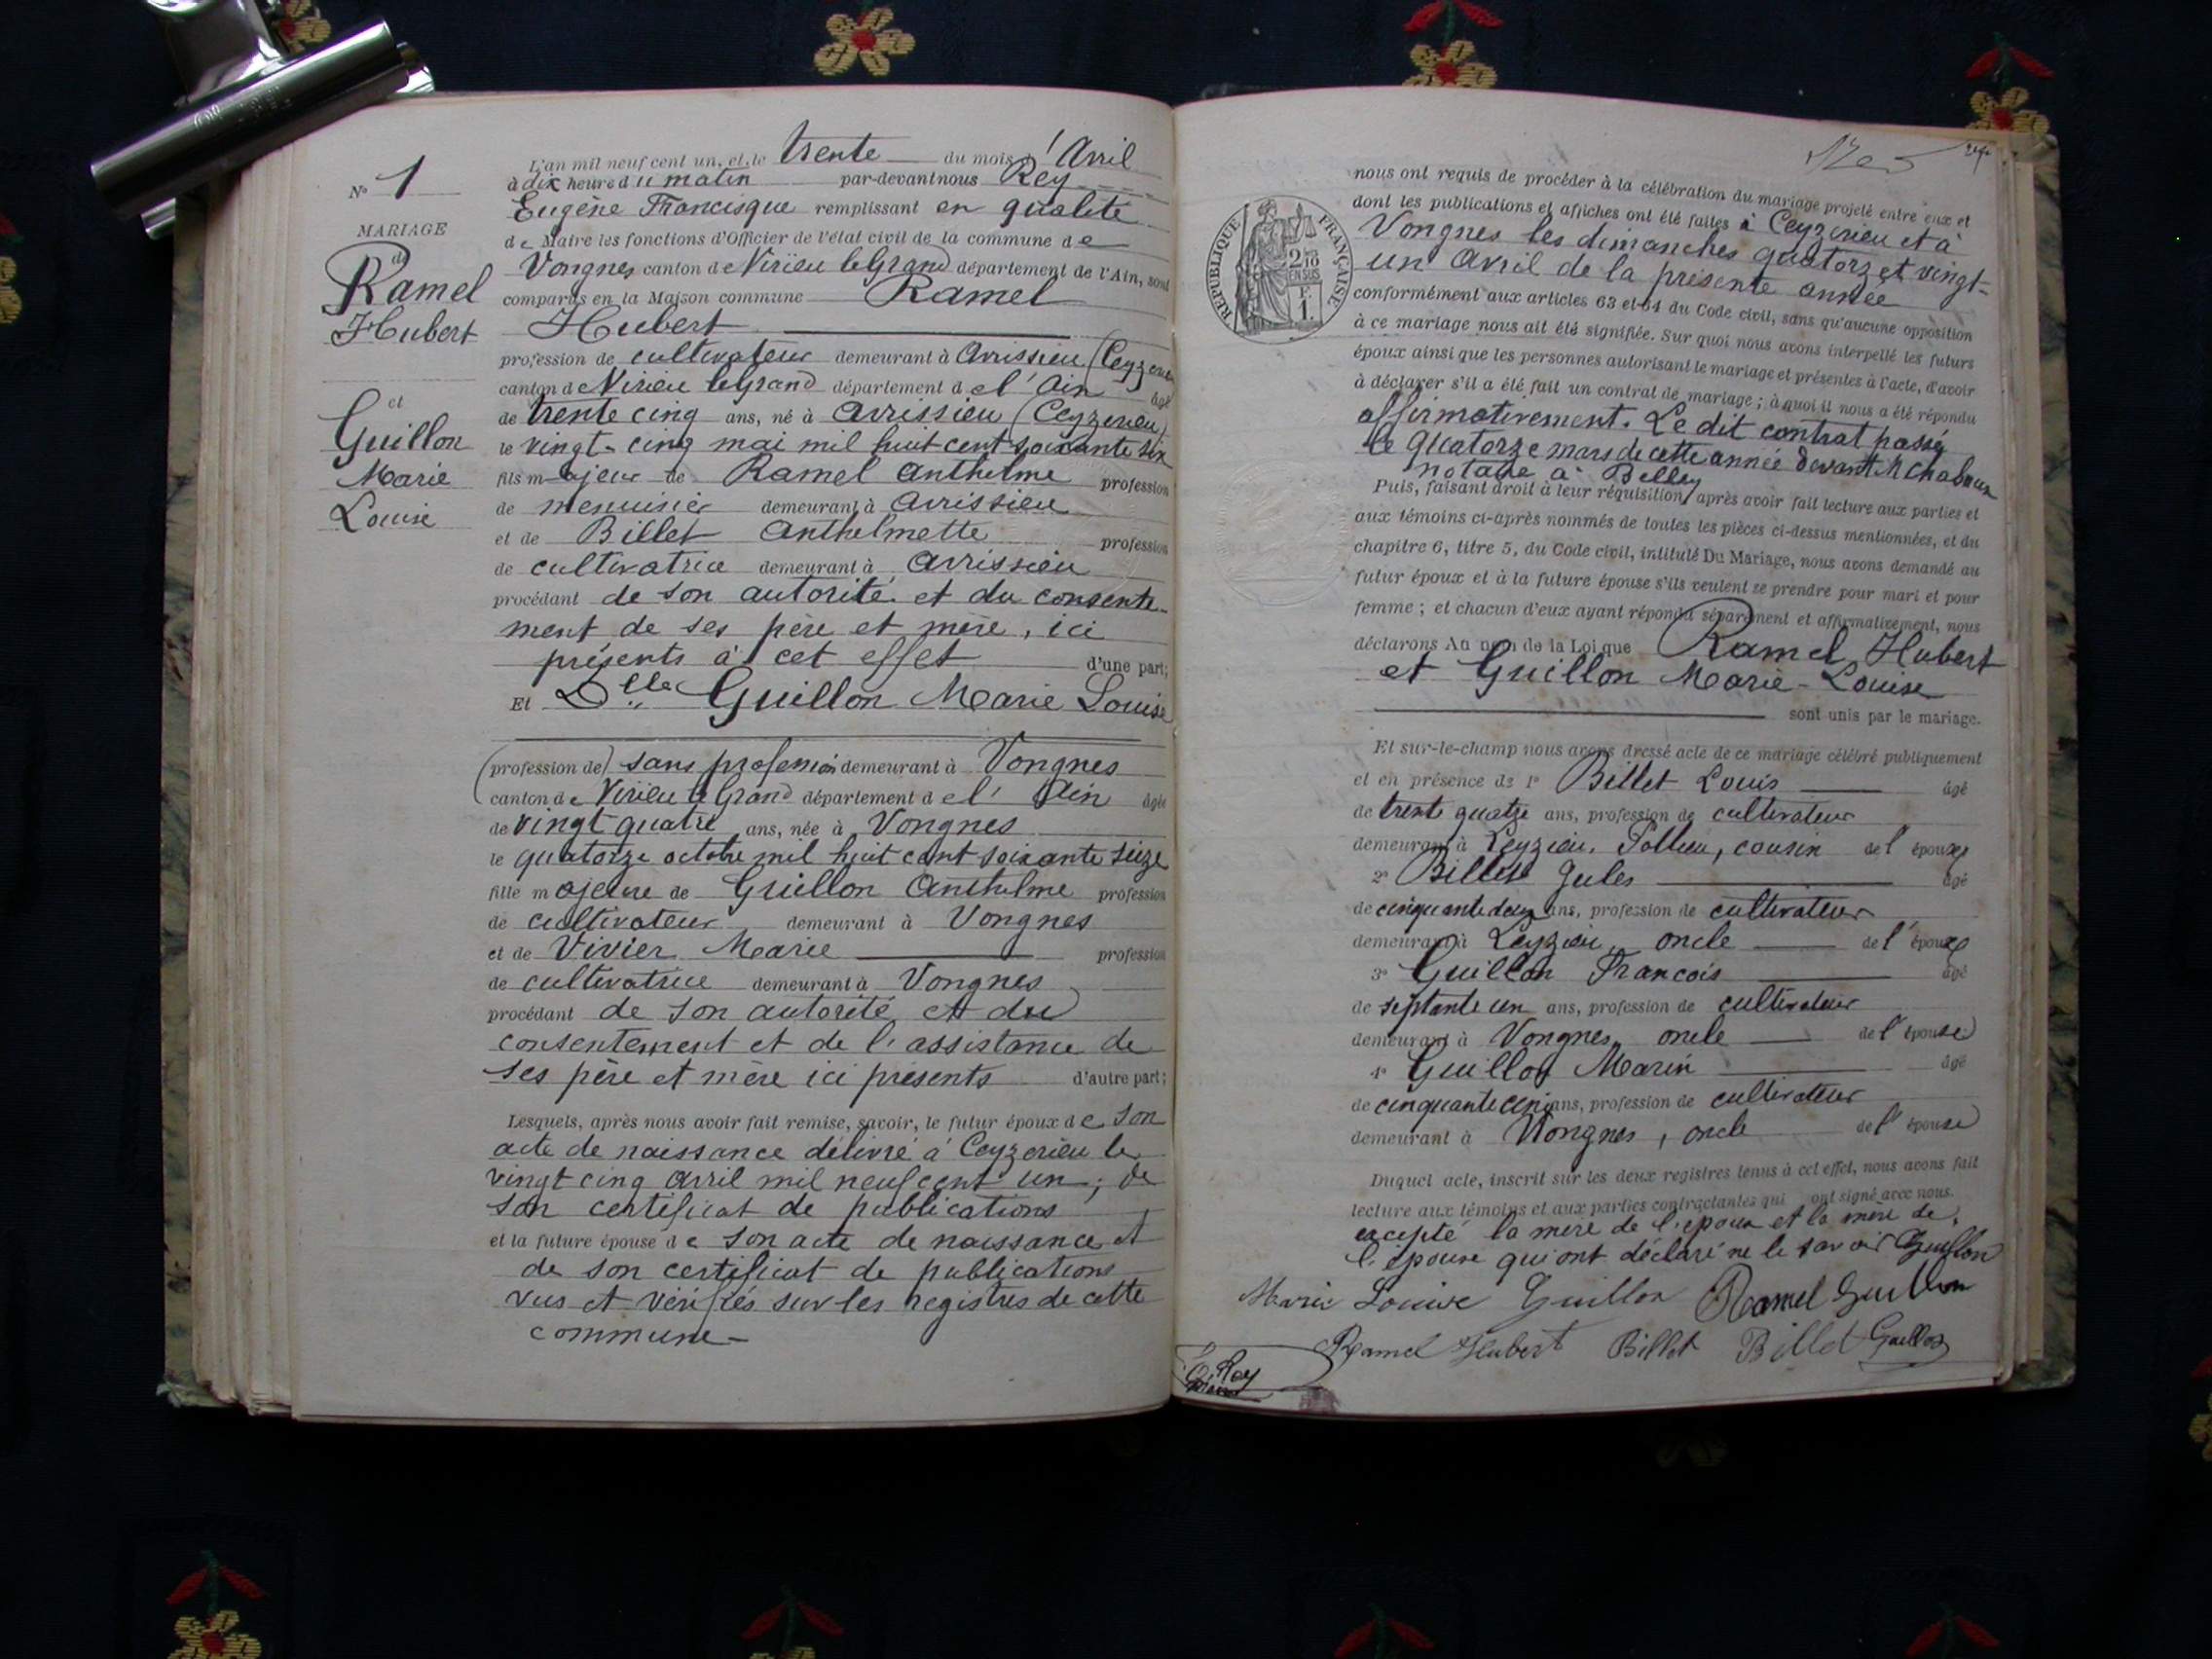 N° 1
MARIAGE
de
Ramel
Hubert
et
Guillon
Marie
Louise
L'an mil neuf cent un, et le trente du mois d'Avril
à dix heure du matin par-devant nous Rey
Eugène Francisque remplissant en qualité
de Maire les fonctions d'Officier de l'état civil de la commune de
Vongnes canton de Virieu le Grand département de l'Ain, sont
comparus en la Maison commune Ramel
Hubert
profession de cultivateur demeurant à Avrissieu (Ceyzerieu
canton de Virieu le Grand département de l'Ain âgé
de trente cinq ans, né à Avrissieu (Ceyzerieu)
le vingt-cinq mai mil huit cent soixante six
fils majeur de Ramel Anthelme profession
de menuisier demeurant à Avrissieu
et de Billet Anthelmette profession
de cultivatrice demeurant à Avrissieu
procédant de son autorité et du consente-
ment de ses père et mère, ici
présents à cet effet d'une part;
Et Dlle Guillon Marie Louise
(profession de) sans profession demeurant à Vongnes
canton de Virieu le Grand département de l'Ain âgée
de vingt quatre ans, née à Vongnes
le quatorze octobre mil huit cent soixante seize
fille majeure de Guillon Anthelme profession
de cultivateur demeurant à Vongnes
et de Vivier Marie profession
de cultivatrice demeurant à Vongnes
procédant de son autorité et du
consentement et de l'assistance de
ses père et mère ici présents d'autre part;
Lesquels, après nous avoir fait remise, savoir, le futur époux de son
acte de naissance délivré à Ceyzerieu le
vingt cinq avril mil neuf cent un; de
son certificat de publications
et la future épouse de son acte de naissance et
de son certificat de publications
vus et vérifiés sur les registres de cette
commune -
REPUBLIQUE FRANÇAISE
2/10
EN SUS
F.
1.
nous ont requis de procéder à la célébration du mariage projeté entre eux et
dont les publications et affiches ont été faites à Ceyzerieu et à
Vongnes les dimanches quatorze et vingt-
un Avril de la présente année
conformément aux articles 63 et 64 du Code civil, sans qu'aucune opposition
à ce mariage nous ait été signifiée. Sur quoi nous avons interpellé les futurs
époux ainsi que les personnes autorisant le mariage et présentes à l'acte, d'avoir
à déclarer s'il a été fait un contrat de mariage; à quoi il nous a été répondu
affirmativement. Le dit contrat passé
le quatorze mars de cette année devant M
notaire à Belley
Puis, faisant droit à leur réquisition après avoir fait lecture aux parties et
aux témoins ci-après nommés de toutes les pièces ci-dessus mentionnées, et du
chapitre 6, titre 5, du Code civil, intitulé Du Mariage, nous avons demandé au
futur époux et à la future épouse s'ils veulent se prendre pour mari et pour
femme; et chacun d'eux ayant répondu séparément et affirmativement, nous
déclarons Au nom de la Loi que Ramel Hubert
et Guillon Marie-Louise
sont unis par le mariage.
Et sur-le-champ nous avons dressé acte de ce mariage célébré publiquement
et en présence de 1° Billet Louis âgé
de trente quatre ans, profession de cultivateur
demeurant à Leyzieu, Pollieu, cousin de l'époux
2° Billet Jules âgé
de cinquante deux ans, profession de cultivateur
demeurant à Leyzieu, oncle de l'époux
3° Guillon Francois âgé
de septante un ans, profession de cultivateur
demeurant à Vongnes, oncle de l'épouse
4° Guillon Marin âgé
de cinquante cinq ans, profession de cultivateur
demeurant à Vongnes, oncle de l'épouse
Duquel acte, inscrit sur les deux registres tenus à cet effet, nous avons fait
lecture aux témoins et aux parties contractantes qui ont signé avec nous.
excepté la mère de l'époux et la mère de
l'épouse qui ont déclaré ne le savoir Guillon
Marie Louise Guillon Ramel Guillon
Ramel Hubert Billet Billet Guillon
Rey